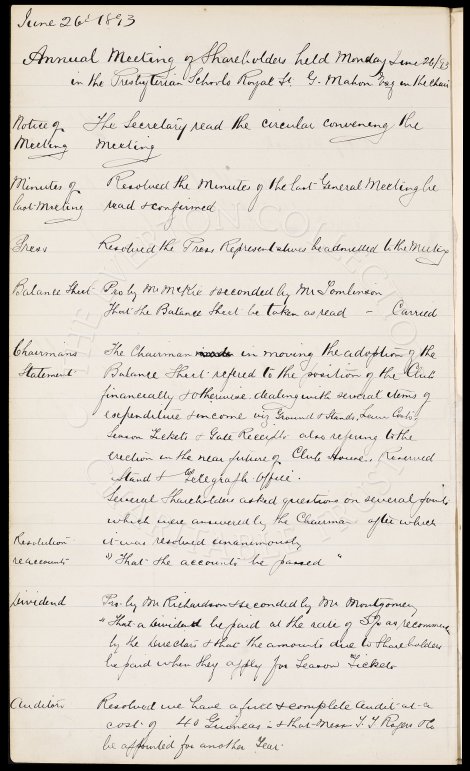 June 26th 1893
Annual Meeting of Shareholders held Monday June 26/93
in the Presbyterian Schools Royal St. G. Mahon Esq in the Chair
Notice of Meeting The Secretary read the circular convening the
Meeting
Minutes of last Meeting Resolved the Minutes of the last General Meeting be
read & confirmed
Press Resolved the Press Representatives be admitted to the Meeting
Balance Sheet Pro by Mr McKie & seconded by Mr Tomlinson
That the Balance Sheet be taken as read – Carried
Chairmans Statement The Chairman in moving the adoption of the
Balance Sheet refered to the position of the Club
financially & otherwise, dealing with several items of
expenditure & income viz Ground & Stands, Law Costs,
Season Tickets & Gate Receipts also refering to the
erection in the near future of Club House, Reserved
Stand & Telegraph Office.
Several Shareholders asked questions on several points
which were answered by the Chairman after which
Resolution re accounts it was resolved unanimously
"That the accounts be passed"
Dividend Pro by Mr Richardson & seconded by Mr Montgomery
"That a Dividend be paid at the rate of 5% as recommen
by the Directors & that the amounts due to Shareholders
be paid when they apply for Season Tickets
Auditors Resolved we have a full & complete Audit at a
cost of 40 Guineas & that Messrs T. J Rogers & Co
be appointed for another Year.
THE EVERTON COLLECTION